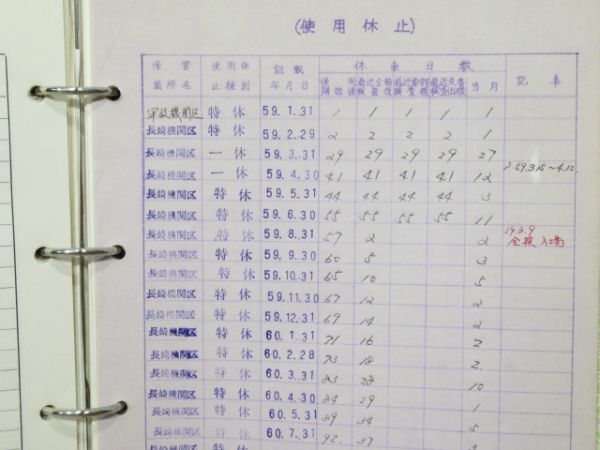 (使用休止)
管 使用休 記載 休車日数 記事
箇所名 止種別 年月日 当月
機関区 特休 59.1.31 1 1 1 1 1
長崎機関区 特休 59.2.29 2 2 2 2 1
長崎機関区 一休 59.3.31 29 29 29 29 27
長崎機関区 一休 59.4.30 41 41 41 41 12
長崎機関区 特休 59.5.31 44 44 44 44 3
長崎機関区 特休 59.6.30 55 55 55 55 11
長崎機関区 特休 59.8.31 57 2 2 全検入場
長崎機関区 特休 59.9.30 60 5 3
長崎機関区 特休 59.10.31 65 10 5
長崎機関区 特休 59.11.30 67 12 2
長崎機関区 特休 59.12.31 69 14 2
長崎機関区 特休 60.1.31 71 16 2
長崎機関区 特休 60.2.28 73 18 2
長崎機関区 特休 60.3.31 83 28 10
長崎機関区 特休 60.4.30 84 29 1
長崎機関区 特休 60.5.31 89 34 5
長崎機関区 特休 60.7.31 92 37